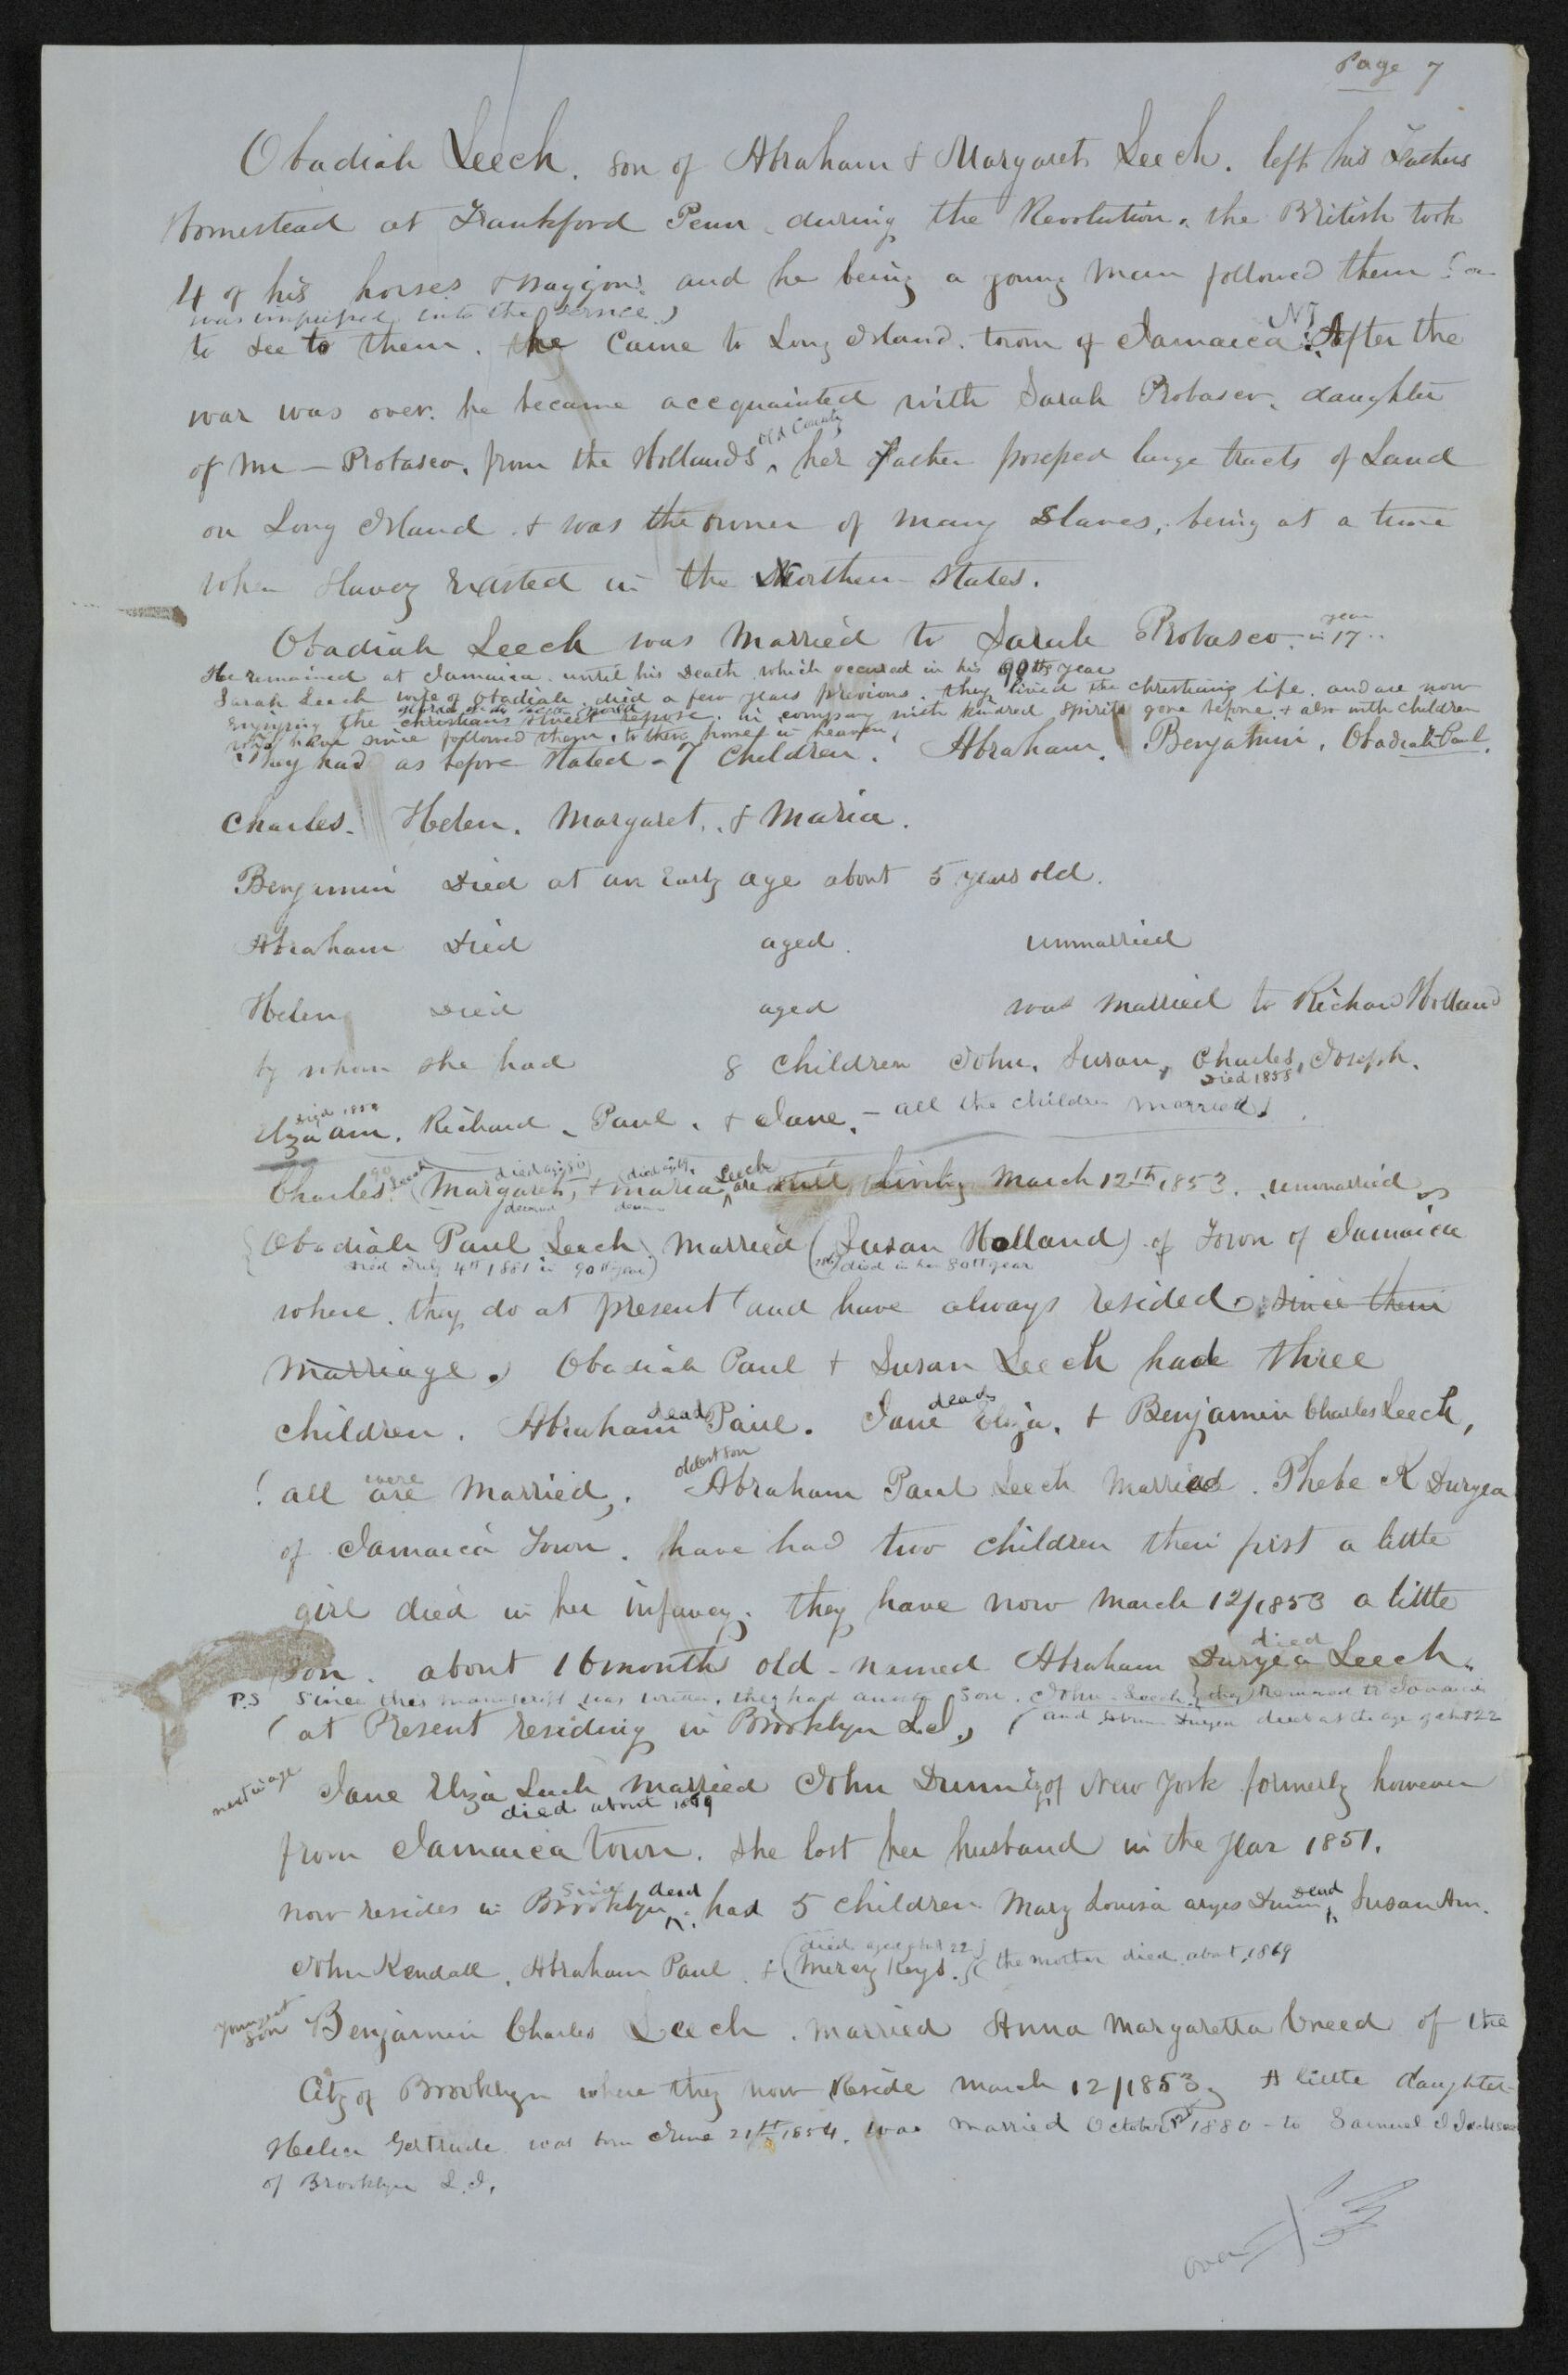 Page 7
Obadiah Leech. son of Abraham & Margaret Leech. left his Fathers
Homestead at Frankford Penn. during the Revolution. the British took
4 of his horses & waggons. and he being a young man followed them (or
was impressed into the service)
to see to them. he Came to Long Island. town of Jamaica NY. After the
war was over. he became accquainted with Sarah Probasco. daughter
of Mr — Probasco. from the Hollands old County, her father possessed large tracts of Land
on Long Island. & was the owner of many Slaves, being at a time
when Slavery Existed in the Northern States.
Obadiah Leech was Married to Sarah Probasco in year 17..
He remained at Jamaica until his Death which occured in his 90th year
Sarah Leech wife of Obadiah died a few years previous. they lived the christians life. and are now
enjoying the christians sweet repose. in company with kindred spirits gone before. & also with children
who have since followed them, to there home in heaven,
They had as before stated - 7 Children. Abraham. Benjamin, Obadiah Paul.
Charles. Helen. Margaret. & Maria.
Benjamin Died at an Early age about 5 years old.
Abraham Died aged. unmarried
Helen Died aged was married to Richard Holland
by whom she had 8 Children John, Susan, Charles, Joseph.
Died 1858
Died 1858
Eliza ann. Richard. Paul. & Jane. - all the children married.
90 Leech died age 80 died age Leech
Charles (Margaret, & Maria are still living March 12th 1853. unmarried
deceased
Obadiah Paul Leech. Married (Susan Holland) of Town of Jamaica
died July 4th 1881 in 90th year) died in her 80th year
where they do at present and have always resided since their
marriage. Obadiah Paul & Susan Leech had three
dead dead
children. Abraham Paul. Jane Eliza. & Benjamin Charles Leech,
were oldest son
(all are Married,. Abraham Paul Leech Married. Phebe K Duryea
of Jamaica Town. have had two children their first a little
girl died in her infancy. they have now March 12/1853 a little
died
son. about 16 month old - named Abraham Duryea Leech.
P.S Since this manuscript was written, they had another son. John Leech. they removed to Jamaica
(at Present residing in Brooklyn L.I.) (and Abram Duryea died at the age of abt 22
next in age Jane Eliza Leech married John Dunn of New York formerly however
died about 1869
from Jamaica town. She lost her husband in the year 1851.
since dead Dead
now resides in Brooklyn. had 5 children Mary Louisa Dunn, Susan Ann.
died aged abt 22
John Kendall, Abraham Paul. & (Mercy Keys.) (the mother died about 1869
youngest son Benjamin Charles Leech. married Anna Margaretta Creed of the
City of Brooklyn where they now Reside March 12/1853. A little daughter
Helen Gertrude was born June 21st 1854. was married October 1880 - to Samuel I Jackson
of Brooklyn L.I.
over